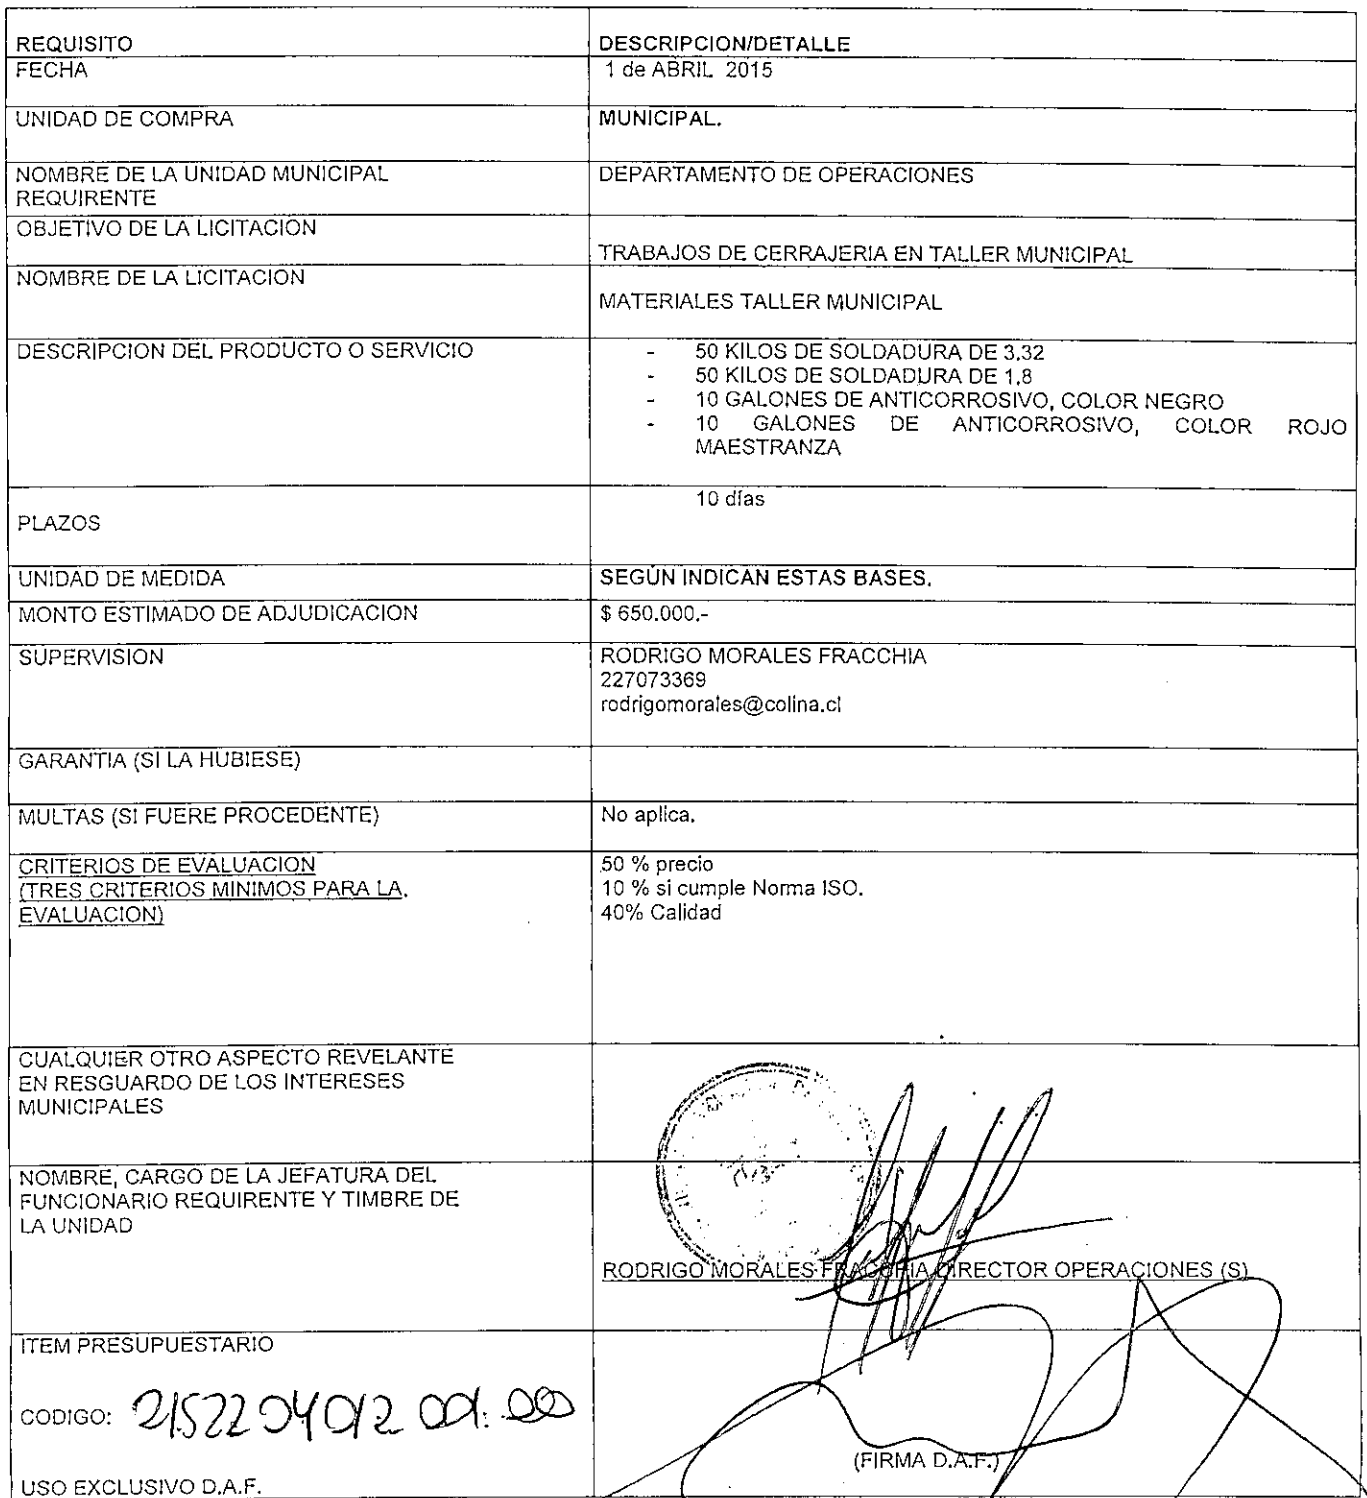 REQUISITO
DESCRIPCION/DETALLE
FECHA
1 de ABRIL 2015
UNIDAD DE COMPRA
MUNICIPAL.
NOMBRE DE LA UNIDAD MUNICIPAL
REQUIRENTE
DEPARTAMENTO DE OPERACIONES
OBJETIVO DE LA LICITACION
TRABAJOS DE CERRAJERIA EN TALLER MUNICIPAL
NOMBRE DE LA LICITACION
MATERIALES TALLER MUNICIPAL
DESCRIPCION DEL PRODUCTO O SERVICIO
- 50 KILOS DE SOLDADURA DE 3.32
- 50 KILOS DE SOLDADURA DE 1.8
- 10 GALONES DE ANTICORROSIVO, COLOR NEGRO
- 10 GALONES DE ANTICORROSIVO, COLOR ROJO
MAESTRANZA
PLAZOS
10 días
UNIDAD DE MEDIDA
SEGÚN INDICAN ESTAS BASES.
MONTO ESTIMADO DE ADJUDICACION
$ 650.000.-
SUPERVISION
RODRIGO MORALES FRACCHIA
227073369
rodrigomorales@colina.cl
GARANTIA (SI LA HUBIESE)
MULTAS (SI FUERE PROCEDENTE)
No aplica.
CRITERIOS DE EVALUACION
(TRES CRITERIOS MINIMOS PARA LA.
EVALUACION)
50 % precio
10 % si cumple Norma ISO.
40% Calidad
CUALQUIER OTRO ASPECTO REVELANTE
EN RESGUARDO DE LOS INTERESES
MUNICIPALES
NOMBRE, CARGO DE LA JEFATURA DEL
FUNCIONARIO REQUIRENTE Y TIMBRE DE
LA UNIDAD
RODRIGO MORALES FRACCHIA DIRECTOR OPERACIONES (S)
ITEM PRESUPUESTARIO
CODIGO: 2152204012 001.00
(FIRMA D.A.F.)
USO EXCLUSIVO D.A.F.